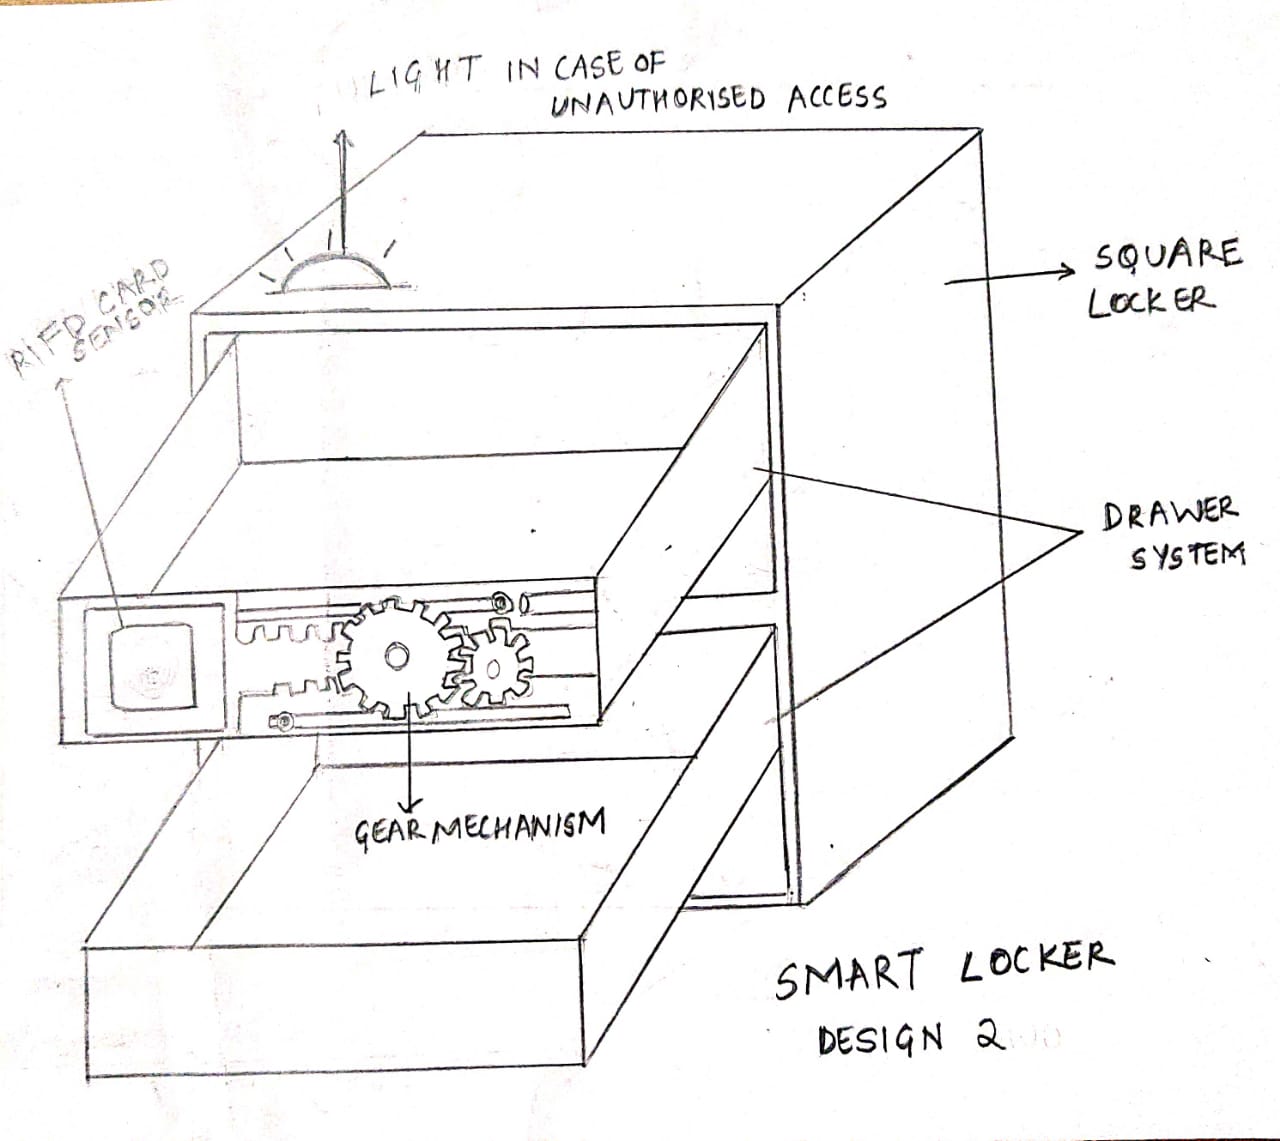 LIGHT IN CASE OF
UNAUTHORISED ACCESS
RIFD CARD
SENSOR
SQUARE
LOCKER
DRAWER
SYSTEM
GEAR MECHANISM
SMART LOCKER
DESIGN 2